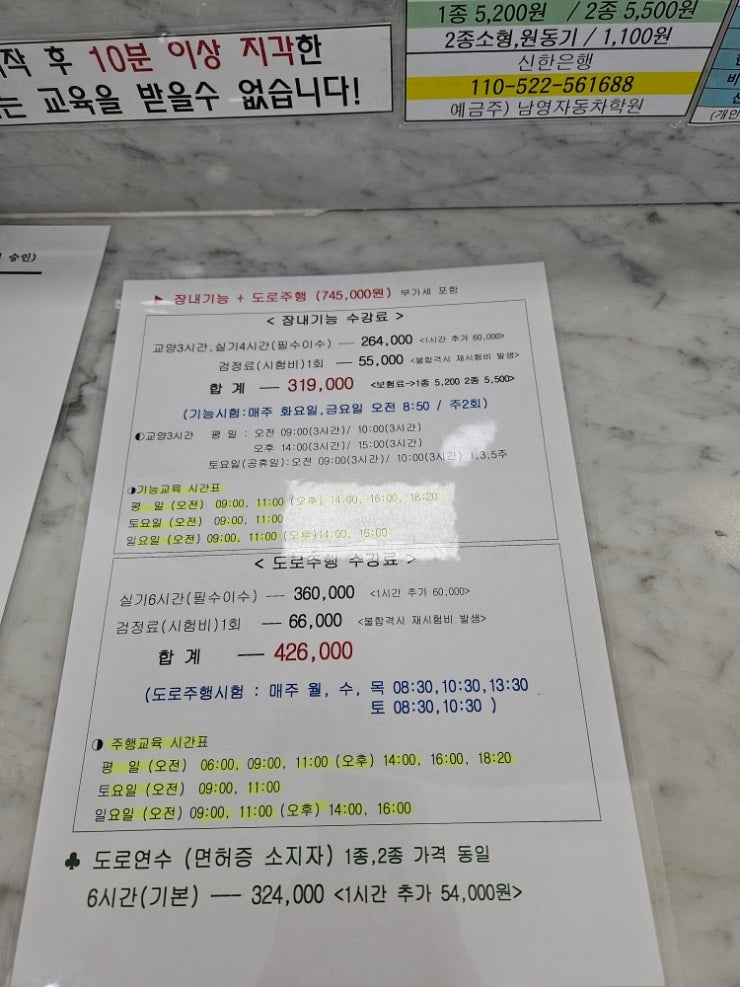 작 후 10분 이상 지각한
는 교육을 받을수 없습니다!
1종 5,200원 / 2종 5,500원
2종소형,원동기 / 1,100원
신한은행
110-522-561688
예금주) 남영자동차학원
(개인
승인)
▶ 장내기능 + 도로주행 (745,000원) 부가세 포함
< 장내기능 수강료 >
교양3시간,실기4시간(필수이수) --- 264,000 <1시간 추가 60,000>
검정료(시험비)1회 --- 55,000 <불합격시 재시험비 발생>
합 계 --- 319,000 <보험료->1종 5,200 2종 5,500>
(기능시험:매주 화요일,금요일 오전 8:50 / 주2회)
◐교양3시간 평 일 : 오전 09:00(3시간)/ 10:00(3시간)
오후 14:00(3시간)/ 15:00(3시간)
토요일(공휴일):오전 09:00(3시간)/ 10:00(3시간) 1,3,5주
◑기능교육 시간표
평 일 (오전) 09:00, 11:00 (오후) 14:00, 16:00, 18:20
토요일 (오전) 09:00, 11:00
일요일 (오전) 09:00, 11:00 (오후)14:00, 16:00
< 도로주행 수강료 >
실기6시간(필수이수) --- 360,000 <1시간 추가 60,000>
검정료(시험비)1회 --- 66,000 <불합격시 재시험비 발생>
합 계 --- 426,000
(도로주행시험 : 매주 월, 수, 목 08:30,10:30,13:30
토 08:30,10:30 )
◑ 주행교육 시간표
평 일 (오전) 06:00, 09:00, 11:00 (오후) 14:00, 16:00, 18:20
토요일 (오전) 09:00, 11:00
일요일 (오전) 09:00, 11:00 (오후) 14:00, 16:00
♣ 도로연수 (면허증 소지자) 1종,2종 가격 동일
6시간(기본) --- 324,000 <1시간 추가 54,000원>